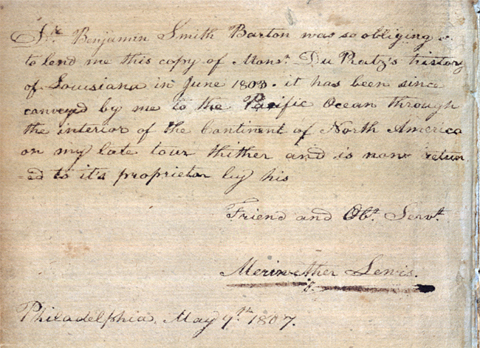 Dr. Benjamin Smith Barton was so obliging as
to lend me this copy of Monsr. Du Pratz's history
of Louisiana in June 1803. it has been since
conveyed by me to the Pacific Ocean through
the interior of the Continent of North America
on my late tour thither and is now return
-ed to it's proprietor by his
Friend and Obt. Servt.
Meriwether Lewis.
Philadelphia, May 9th. 1807.